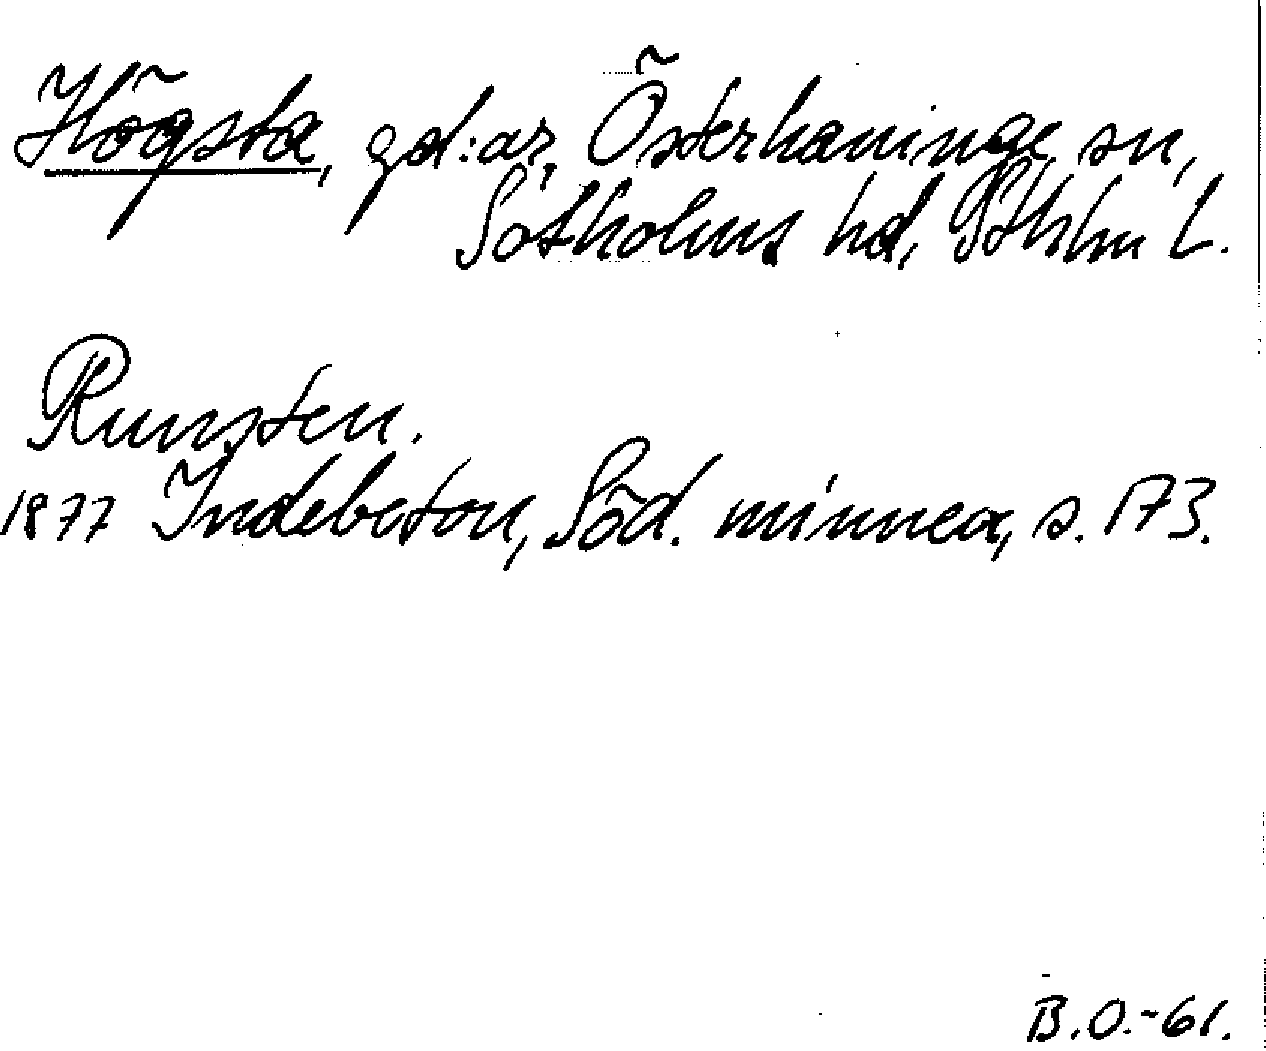 Högsta, gd:ar, Österhaninge sn,
Sotholms hd, Sthlm L.
Runsten.
1877 Indebetou, Söd. minnen, s. 173.
B.O.-61.